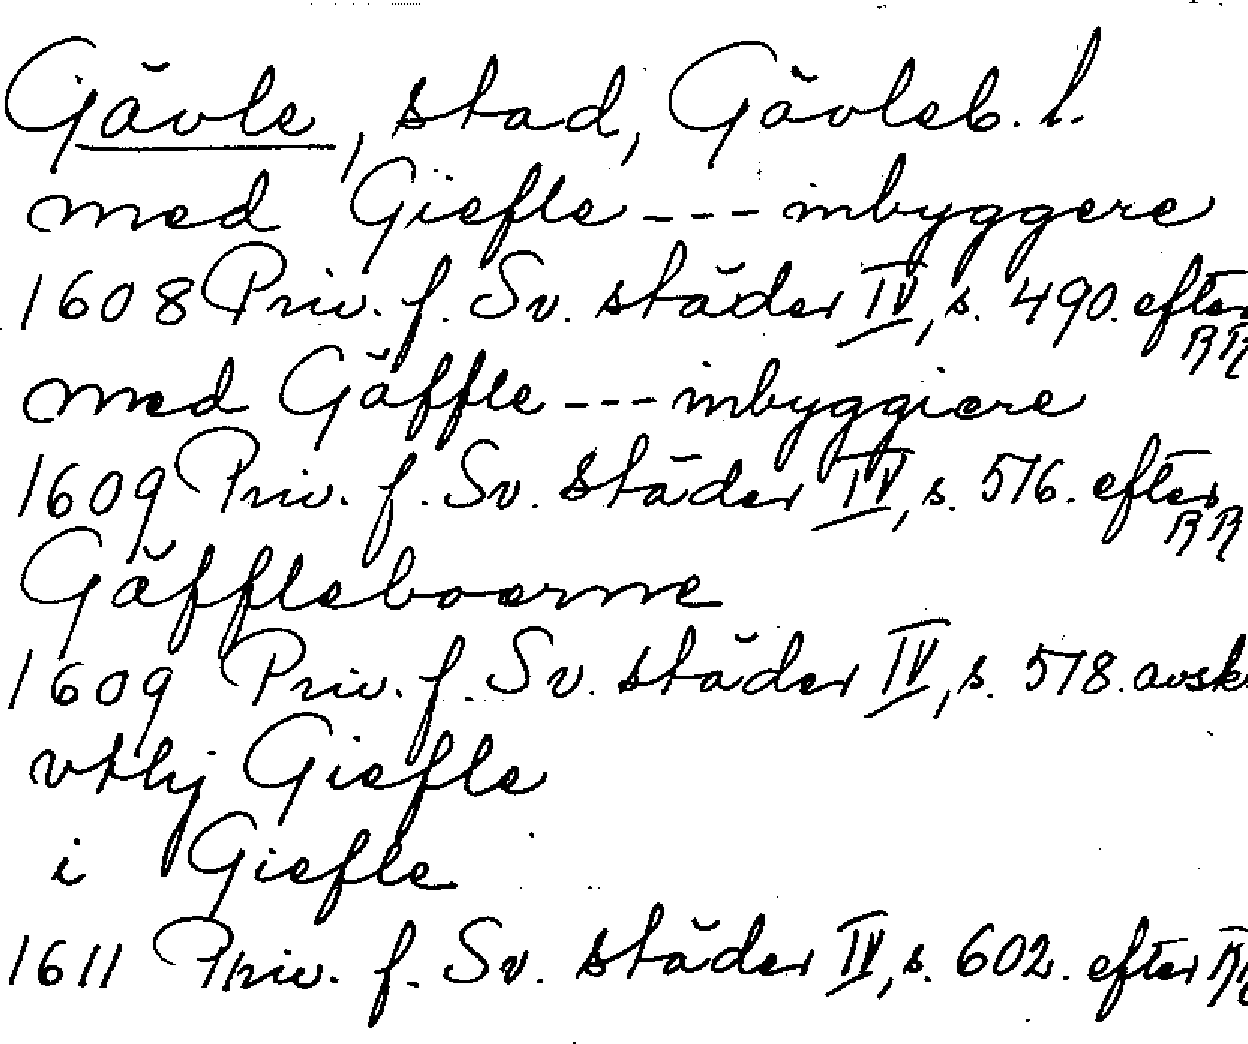 Gävle, stad, Gävleb. l.
med Giefle --- inbyggere
1608 Priv. f. Sv. städer IV, s. 490. efter RR
med Gäffle --- inbyggiere
1609 Priv. f. Sv. städer IV, s. 576. efter RR
Gäffleboerne
1609 Priv. f. Sv. städer IV, s. 578. avskr
vthj Giefle
i Giefle
1611 Priv. f. Sv. städer IV, s. 602. efter RR